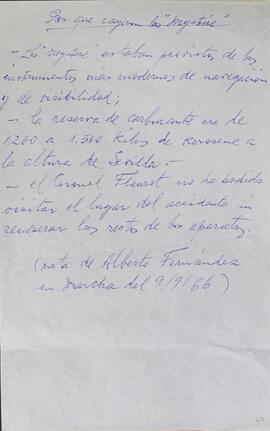 Por que cayeron los "Mystère"
- Los "mystère" estaban provistos de los
instrumentos más modernos de navegación
y de visibilidad;
- la reserva de carburante era de
1.200 a 1.500 kilos de kerosene a
la altura de Sevilla.-
- el Coronel Fleurot no ha podido
visitar el lugar del accidente ni
recuperar los restos de los aparatos.
(nota de Alberto Fernández
en Marcha del 9/9/66)